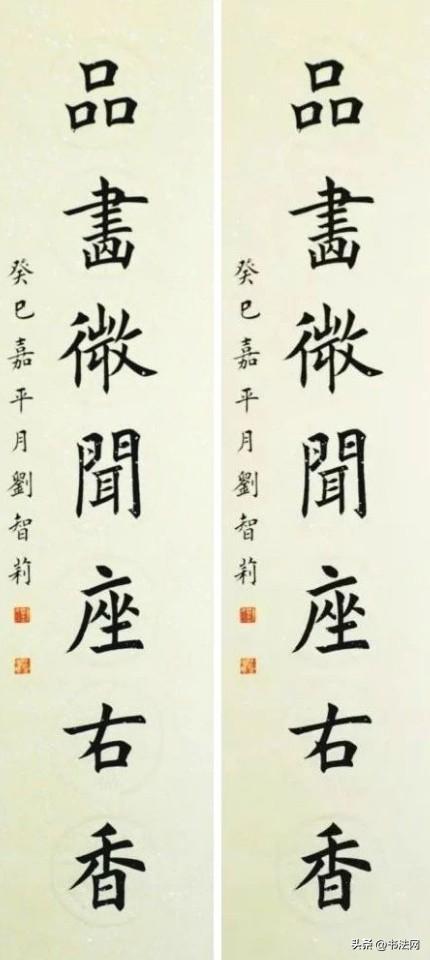 品畫微聞座右香
癸巳嘉平月劉智莉
品畫微聞座右香
癸巳嘉平月劉智莉
头条 @书法网